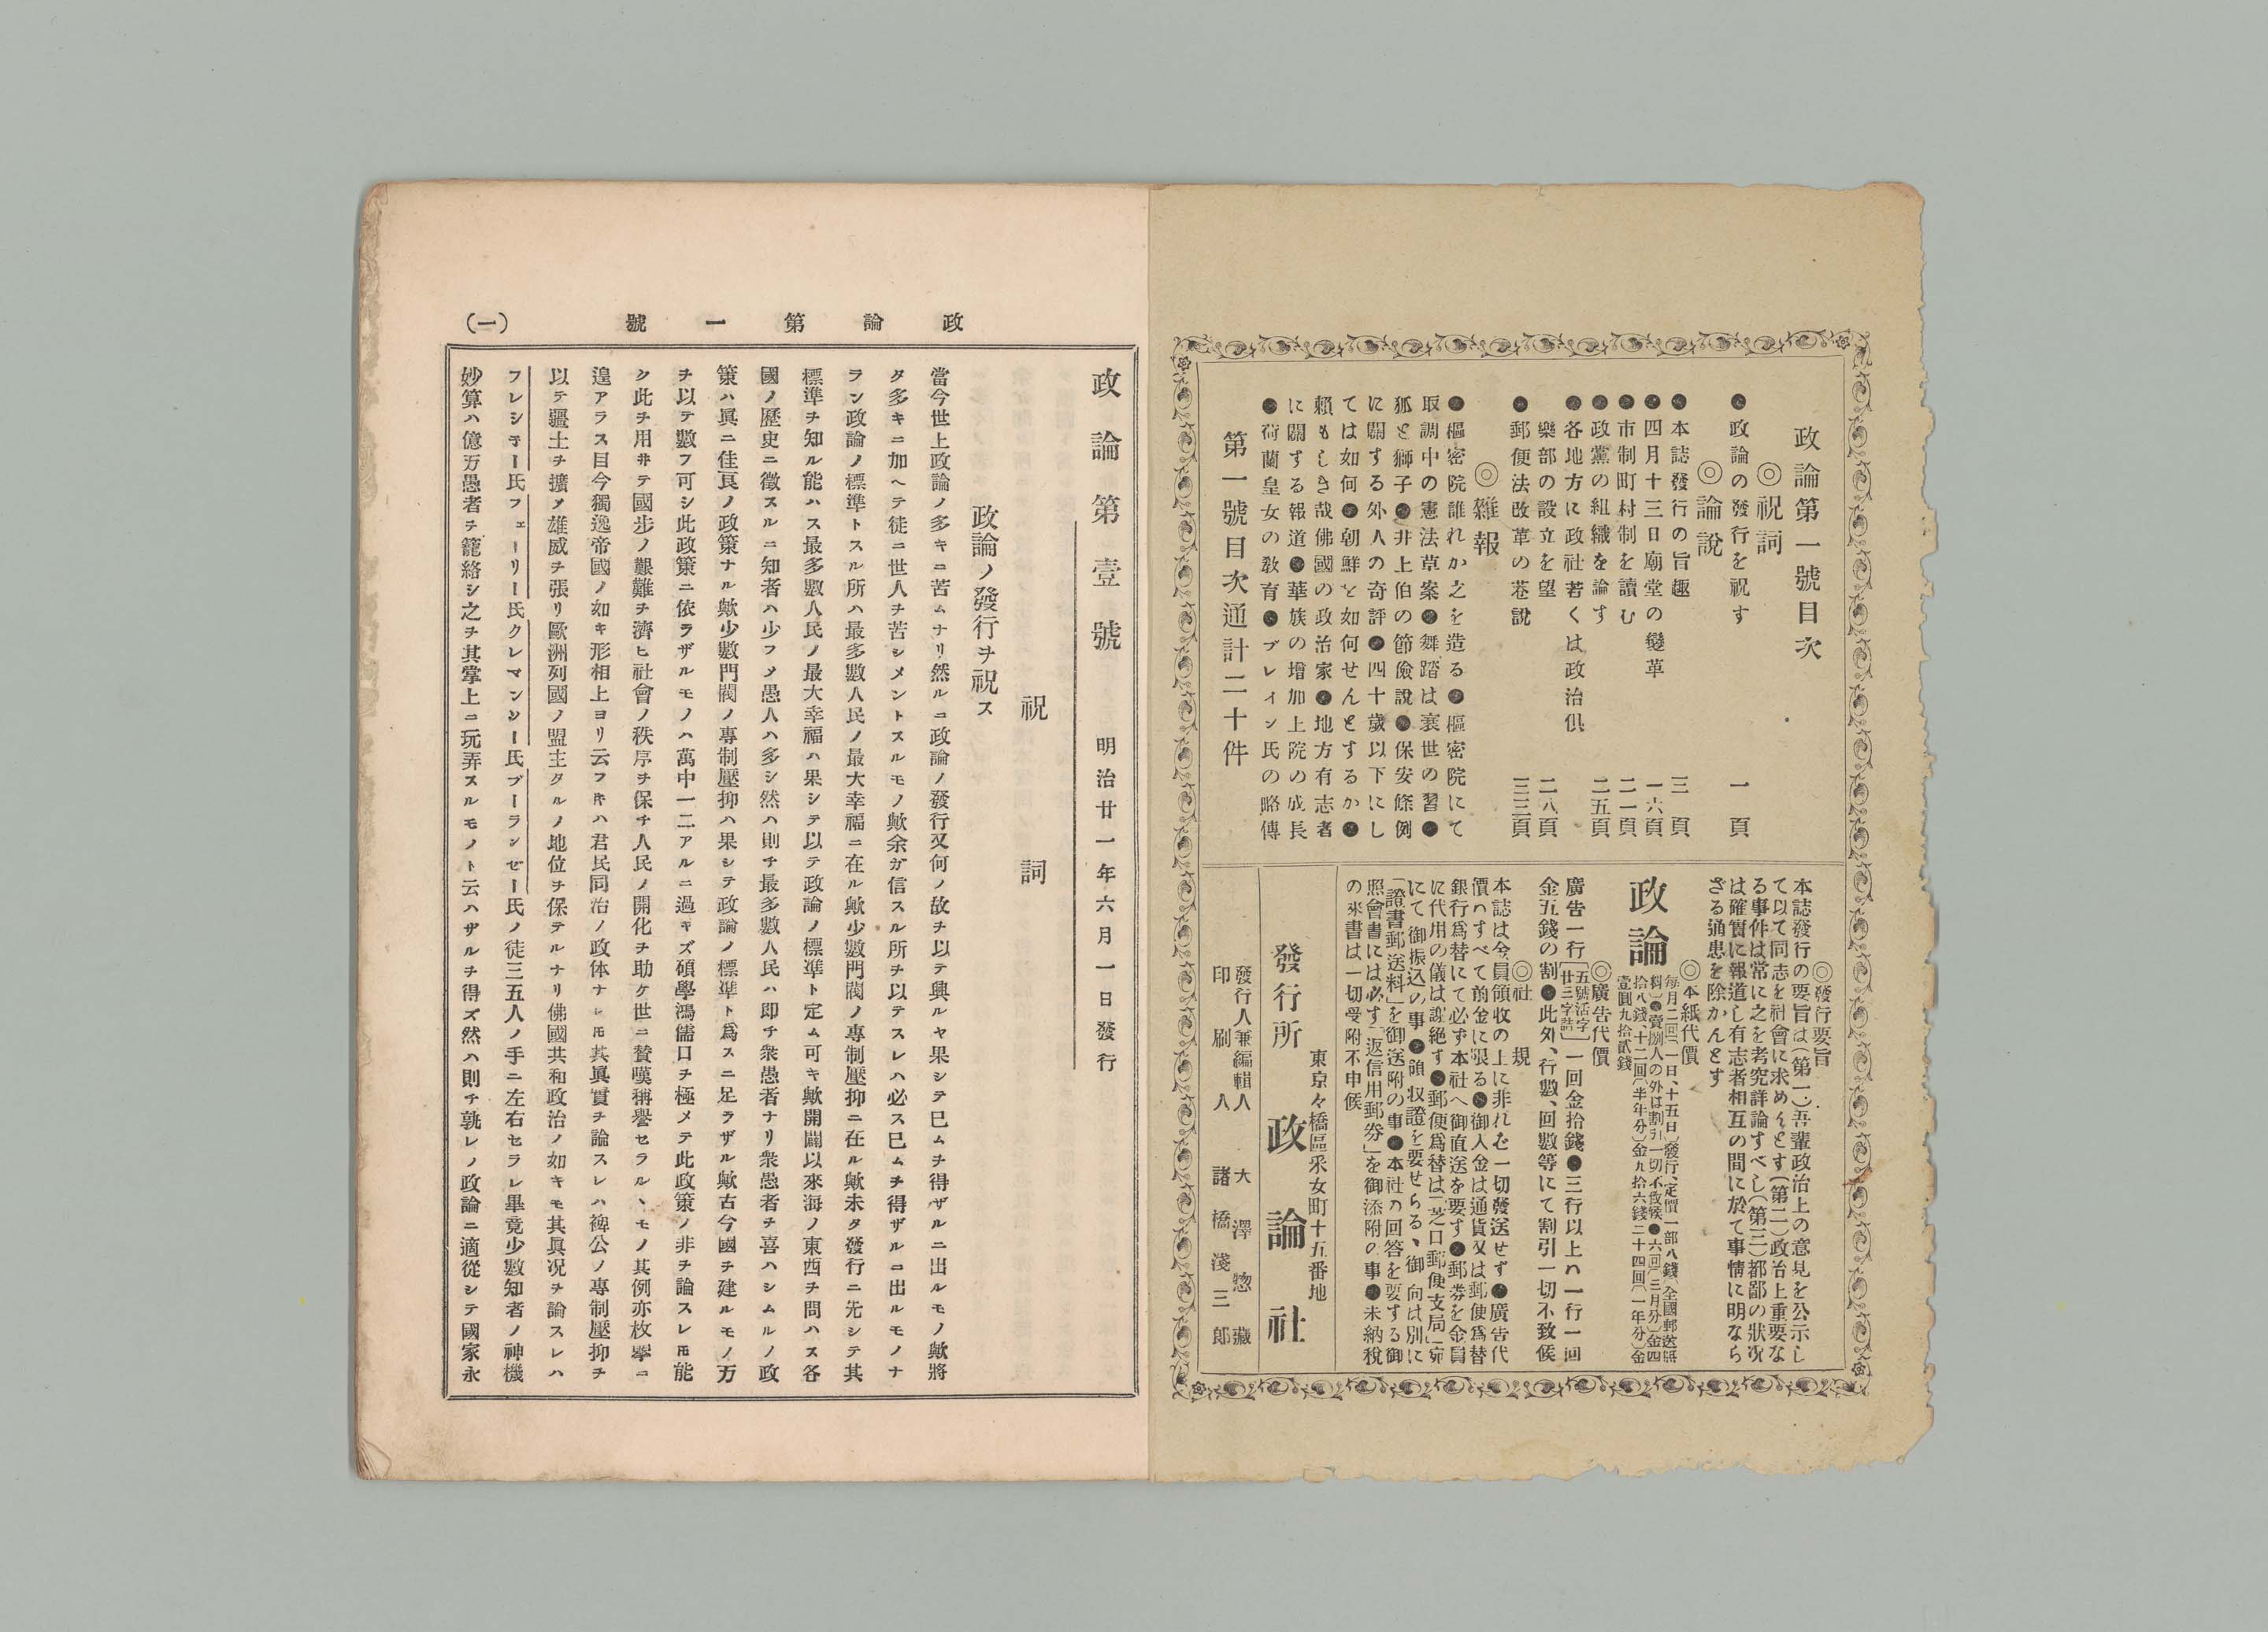 政論第一號目次
◎祝詞
●政論の發行を祝す 一頁
◎論說
●本誌發行の旨趣 三頁
●四月十三日廟堂の變革 一六頁
●市制町村制を讀む 二一頁
●政黨の組織を論す 二五頁
●各地方に政社若くは政治俱
樂部の設立を望 二八頁
●郵便法改革の巷說 三三頁
◎雜報
●樞密院誰れか之を造る●樞密院にて
取調中の憲法草案●舞踏は衰世の習●
狐と獅子●井上伯の節儉說●保安條例
に關する外人の奇評●四十歲以下にし
ては如何●朝鮮を如何せんとするか●
賴もしき哉佛國の政治家●地方有志者
に關する報道●華族の增加上院の成長
●荷蘭皇女の敎育●ブレイン氏の略傳
第一號目次通計二十件
◎發行要旨
本誌發行の要旨は(第一)吾輩政治上の意見を公示し
て以て同志を社會に求めんとす(第二)政治上重要な
る事件は常に之を考究詳論すべし(第三)都鄙の狀況
は確實に報道し有志者相互の間に於て事情に明なら
ざる通患を除かんとす
政論
◎本紙代價
每月二回(一日、十五日)發行、定價一部八錢(全國郵送無
料)●賣捌人の外は割引一切不致候●六回(三月分)金四
拾八錢、十二回(半年分)金九拾六錢二十四回(一年分)金
壹圓九拾貳錢
◎廣告代價
廣告一行(五號活字廿三字詰)一回金拾錢●三行以上ハ一行一回
金五錢の割●此外、行數、回數等にて割引一切不致候
◎社規
本誌は金員領收の上に非れは一切發送せず●廣告代
價ハすべて前金に限る●御入金は通貨又は郵便爲替
銀行爲替にて必ず本社へ御直送を要す●郵券を金員
に代用の儀は謝絕す●郵便爲替は「芝口郵便支局」宛
にて御振込の事●領収證を要せらるゝ御向は別に
「證書郵送料」を御送附の事●本社の回答を要する御
照會書には必す「返信用郵券」を御添附の事●未納稅
の來書は一切受附不申候
東京々橋區采女町十五番地
發行所 政論社
發行人兼編輯人 大澤惣藏
印刷人 諸橋淺三郎
政論第一號 (一)
政論第壹號 明治廿一年六月一日發行
祝詞
政論ノ發行ヲ祝ス
當今世上政論ノ多キニ苦ムナリ然ルニ政論ノ發行又何ノ故ヲ以テ興ルヤ果シテ已ムヲ得ザルニ出ルモノ歟將
タ多キニ加ヘテ徒ニ世人ヲ苦シメントスルモノ歟余ガ信スル所ヲ以テスレハ必ス已ムヲ得ザルニ出ルモノナ
ラン政論ノ標準トスル所ハ最多數人民ノ最大幸福ニ在ル歟少數門閥ノ專制壓抑ニ在ル歟未タ發行ニ先シテ其
標準ヲ知ル能ハス最多數人民ノ最大幸福ハ果シテ以テ政論ノ標準ト定ム可キ歟開闢以來海ノ東西ヲ問ハス各
國ノ歷史ニ徵スルニ知者ハ少フメ愚人ハ多シ然ハ則チ最多數人民ハ即チ衆愚者ナリ衆愚者ヲ喜ハシムルノ政
策ハ眞ニ佳良ノ政策ナル歟少數門閥ノ專制壓抑ハ果シテ政論ノ標準ト爲スニ足ラザル歟古今國ヲ建ルモノ万
ヲ以テ數フ可シ此政策ニ依ラザルモノハ萬中一二アルニ過キズ碩學鴻儒口ヲ極メテ此政策ノ非ヲ論スレ𪜈能
ク此ヲ用井テ國步ノ艱難ヲ濟ヒ社會ノ秩序ヲ保チ人民ノ開化ヲ助ケ世ニ賛嘆稱譽セラルヽモノ其例亦枚擧ニ
遑アラス目今獨逸帝國ノ如キ形相上ヨリ云フ𪜈ハ君民同治ノ政体ナレ𪜈其眞實ヲ論スレハ裨公ノ專制壓抑ヲ
以テ疆土ヲ擴メ雄威ヲ張リ歐洲列國ノ盟主タルノ地位ヲ保テルナリ佛國共和政治ノ如キモ其眞况ヲ論スレハ
フレシキー氏フェーリー氏クレマンソー氏ブーランゼー氏ノ徒三五人ノ手ニ左右セラレ畢竟少數知者ノ神機
妙算ハ億万愚者ヲ籠絡シ之ヲ其掌上ニ玩弄スルモノト云ハザルヲ得ズ然ハ則チ孰レノ政論ニ適從シテ國家永